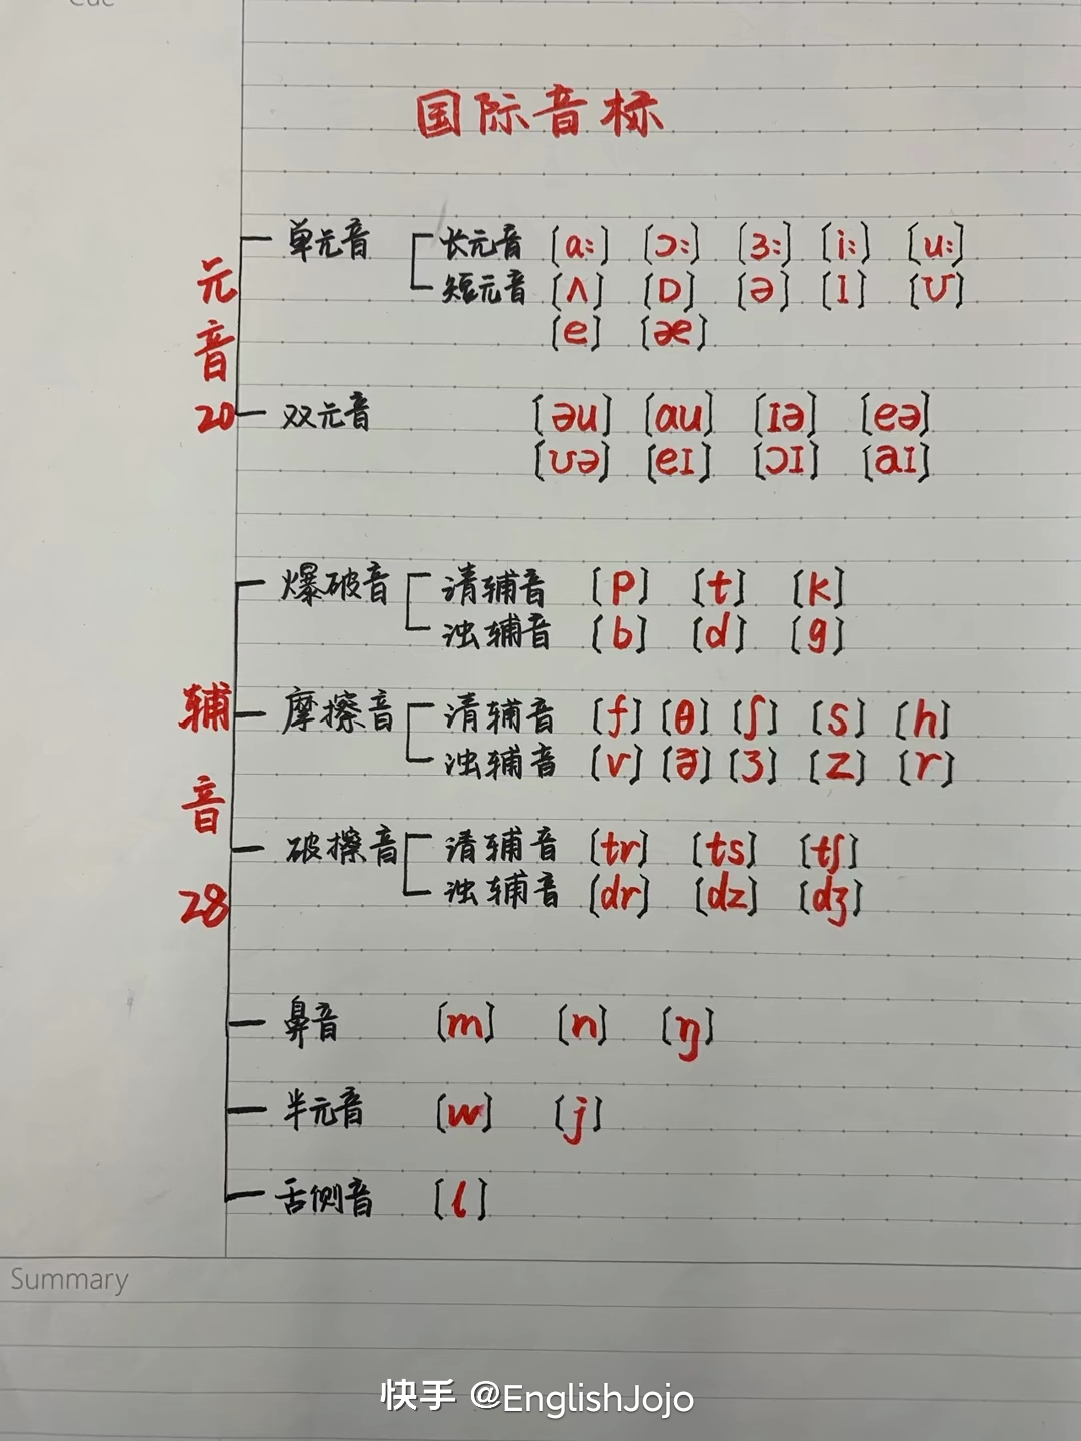 国际音标
单元音 长元音 [a:] [ɔ:] [ɜ:] [i:] [u:]
短元音 [ʌ] [ɒ] [ə] [ɪ] [ʊ]
[e] [æ]
元音
20
双元音 [əu] [au] [ɪə] [eə]
[ʊə] [eɪ] [ɔɪ] [aɪ]
爆破音 清辅音 [p] [t] [k]
浊辅音 [b] [d] [g]
辅音
28
摩擦音 清辅音 [f] [θ] [ʃ] [s] [h]
浊辅音 [v] [ð] [ʒ] [z] [r]
破擦音 清辅音 [tr] [ts] [tʃ]
浊辅音 [dr] [dz] [dʒ]
鼻音 [m] [n] [ŋ]
半元音 [w] [j]
舌侧音 [l]
Summary
快手 @EnglishJojo